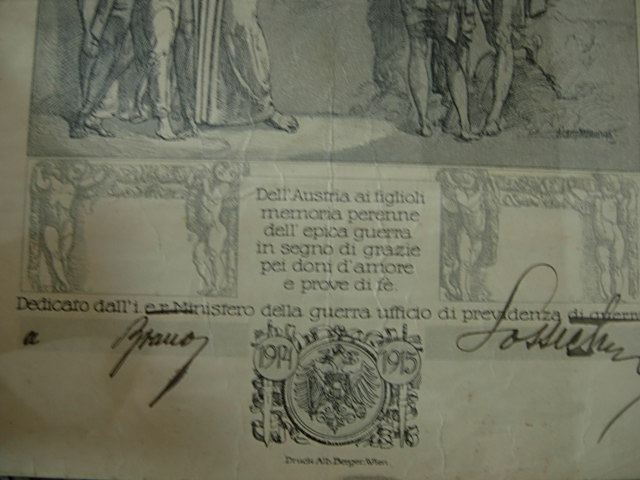 Dell'Austria ai figlioli
memoria perenne
dell' epica guerra
in segno di grazie
pei doni d'amore
e prove di fè.
Dedicato dall'i. e r. Ministero della guerra ufficio di previdenza di guerra
a
1914 1915
Druck: Alb. Berger, Wien.